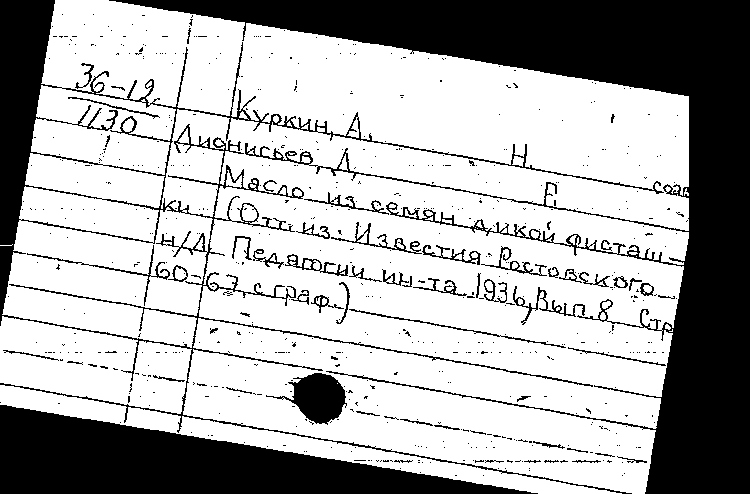 36-12
1130
Куркин, А. Н.
Дионисьев, Д. Е.
Масло из семян дикой фисташ-
ки (Отт. из: Известия Ростовского
н/Д. Педагогич ин-та 1936, Вып. 8, Стр
60-67, с граф.)